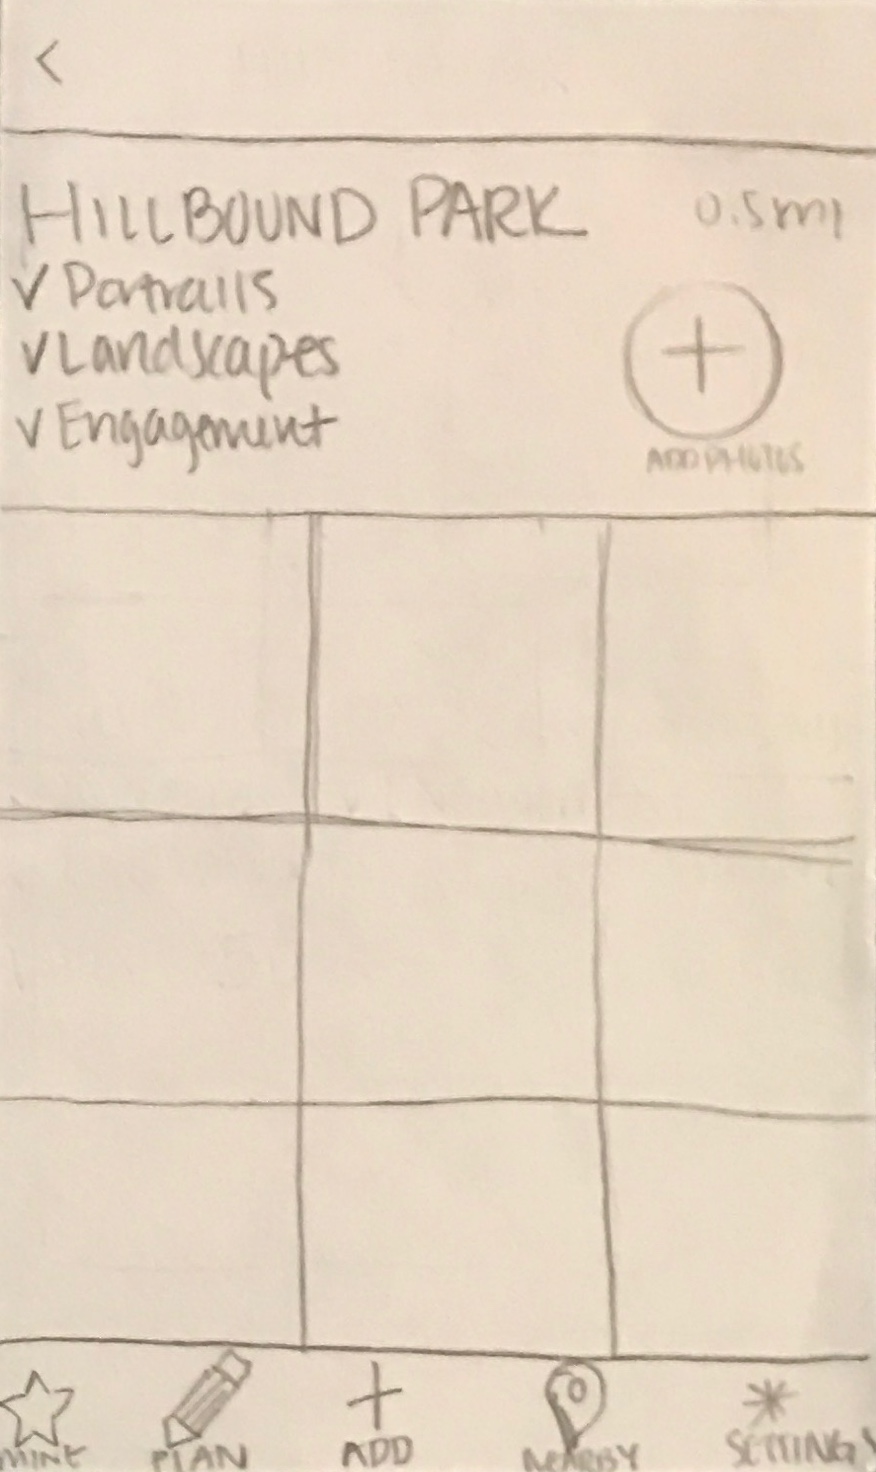 <
HILLBOUND PARK 0.5mi
✓ Portraits
✓ Landscapes
✓ Engagement
+
ADD PHOTOS
MINE PLAN ADD NEARBY SETTINGS